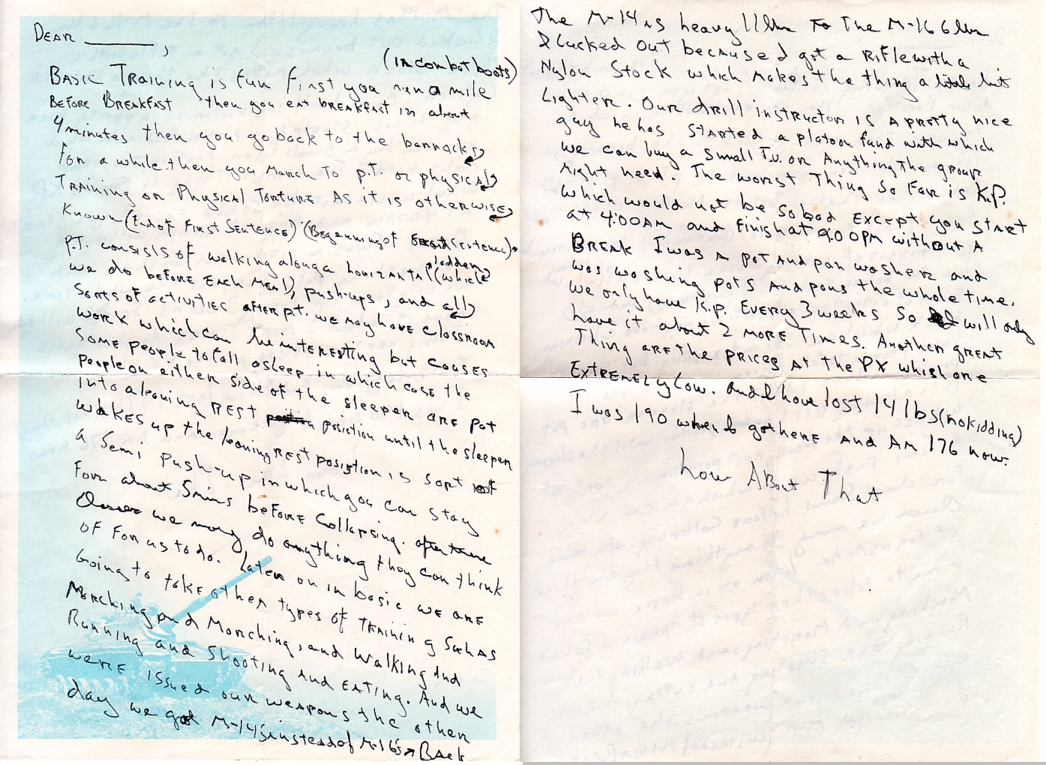 DEAR ________,
(in combat boots)
BASIC TRAINING is fun first you run a mile
BEFORE BREAKFAST then you eat breakfast in about
4 minutes then you go back to the barracks
for a while then you March To p.T. or physical
TRAINING or Physical Torture As it is otherwise
Known (End of First Sentence) (Beginning of Sentence).
P.T. consists of walking along a horizantal ladder (which
we do before Each Meal), push-ups, and all
Sorts of activities after pt. we may have classroom
work which can be interesting but causes
some people to fall asleep in which case the
people on either side of the sleeper are put
into a leaning REST position until the sleeper
wakes up the leaning REST position is sort of
a Semi push-up in which you can stay
For about 5 mins before collapsing. after
we may do anything they can think
of For us to do. Later on in basic we are
Going to take other types of Training Such as
Marching and Marching, and Walking and
Running and Shooting and Eating. And we
were issued our weapons the other
day we got M-14's instead of M-16's → Back
The M-14 is heavy 11 lbs To The M-16 6 lbs
I lucked Out because I got a Rifle with a
Nylon Stock which makes the thing a little bit
Lighter. Our drill instructor is A pretty nice
guy he has STARTED a platoon fund with which
we can buy a small T.V. or Anything the group
might need. The worst Thing So Far is K.P.
which would not be so bad EXCEPT you START
at 4:00AM and finish at 9:00PM without A
BREAK I was A pot And pan washer and
was washing pots and pans the whole time.
we only have K.p. Every 3 weeks So I will only
have it about 2 MORE Times. Another great
Thing are the prices at the PX which are
EXTREMELY low. and I have lost 14 lbs (no kidding)
I was 190 when I got here AND AM 176 now.
how About That